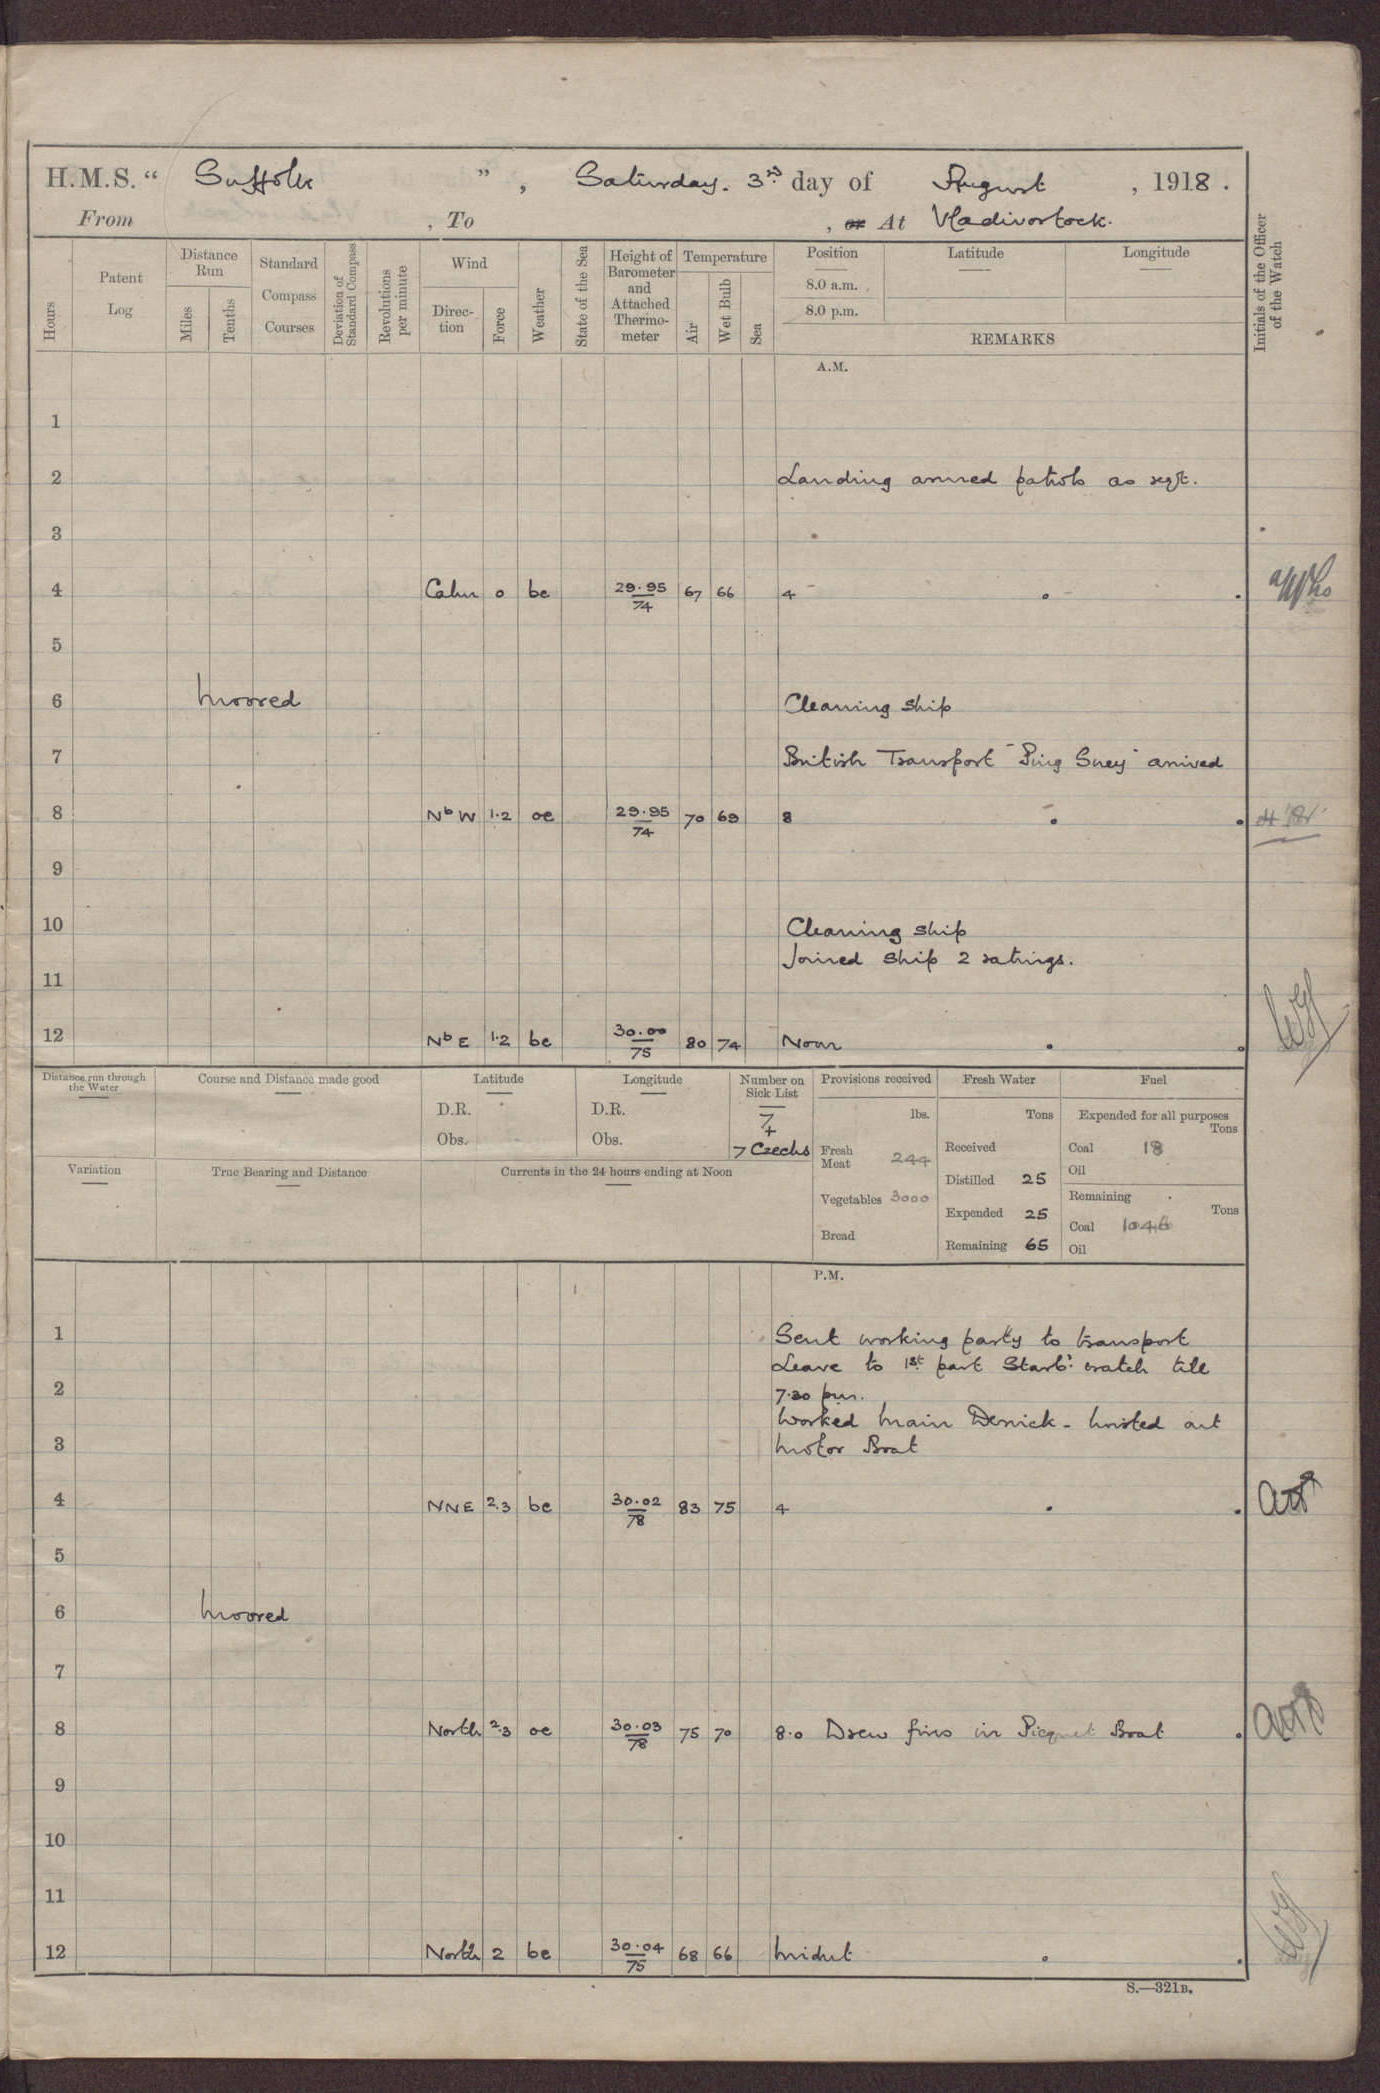 H.M.S. " Suffolk " , Saturday. 3rd day of August , 1918.
From , To , or At Vladivostock.
Hours
Patent Log
Distance Run
Miles
Tenths
Standard Compass Courses
Deviation of Standard Compass
Revolutions per minute
Wind
Direction
Force
Weather
State of the Sea
Height of Barometer and Attached Thermometer
Temperature
Air
Wet Bulb
Sea
Position
8.0 a.m.
8.0 p.m.
Latitude
Longitude
REMARKS
Initials of the Officer of the Watch
A.M.
1
2 Landing armed patrols as reqt.
3
4 Calm 0 bc 29.95 74 67 66 4
5
6 Moored Cleaning ship
7 British Transport "Ping Suey" arrived
8 NbW 1.2 oc 29.95 74 70 69 8
9
10 Cleaning ship
Joined ship 2 ratings.
11
12 NbE 1.2 bc 30.00 75 80 74 Noon
Distance run through the Water
Course and Distance made good
Latitude
D.R.
Obs.
Longitude
D.R.
Obs.
Number on Sick List
7
+
7 Czechs
Provisions received
lbs.
Fresh Meat 244
Vegetables 3000
Bread
Fresh Water
Tons
Received
Distilled 25
Expended 25
Remaining 65
Fuel
Expended for all purposes
Tons
Coal 18
Oil
Remaining
Tons
Coal 1046
Oil
Variation
True Bearing and Distance
Currents in the 24 hours ending at Noon
P.M.
1 Sent working party to transport
Leave to 1st part Starbd watch till
2 7.30 pm.
Worked Main Derrick - hoisted out
3 Motor Boat
4 NNE 2.3 bc 30.02 78 83 75 4
5
6 Moored
7
8 North 2.3 oc 30.03 78 75 70 8.0 Drew fires in Picquet Boat
9
10
11
12 North 2 bc 30.04 75 68 66 Midnt
S.—321B.